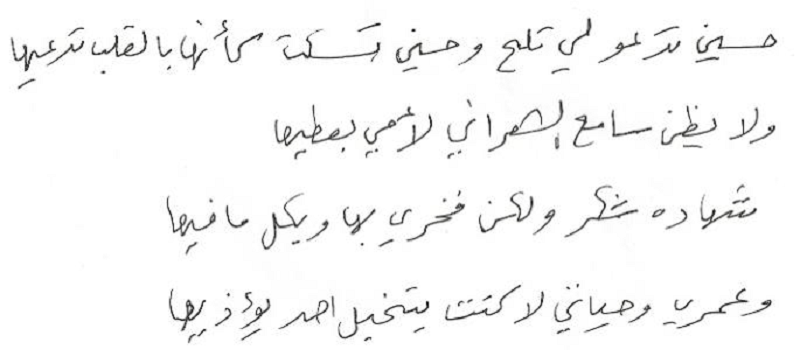 حسيني تدعو لي تلح وحسيني تسكت كأنها بالقلب تدعيها
ولا يظن سامع الشعر اني لأمي بعطيها
شهاده شكر ولكن فخري بها وبكل ما فيها
وعمري وحياتي لا كنت يتخيل احد يؤذيها